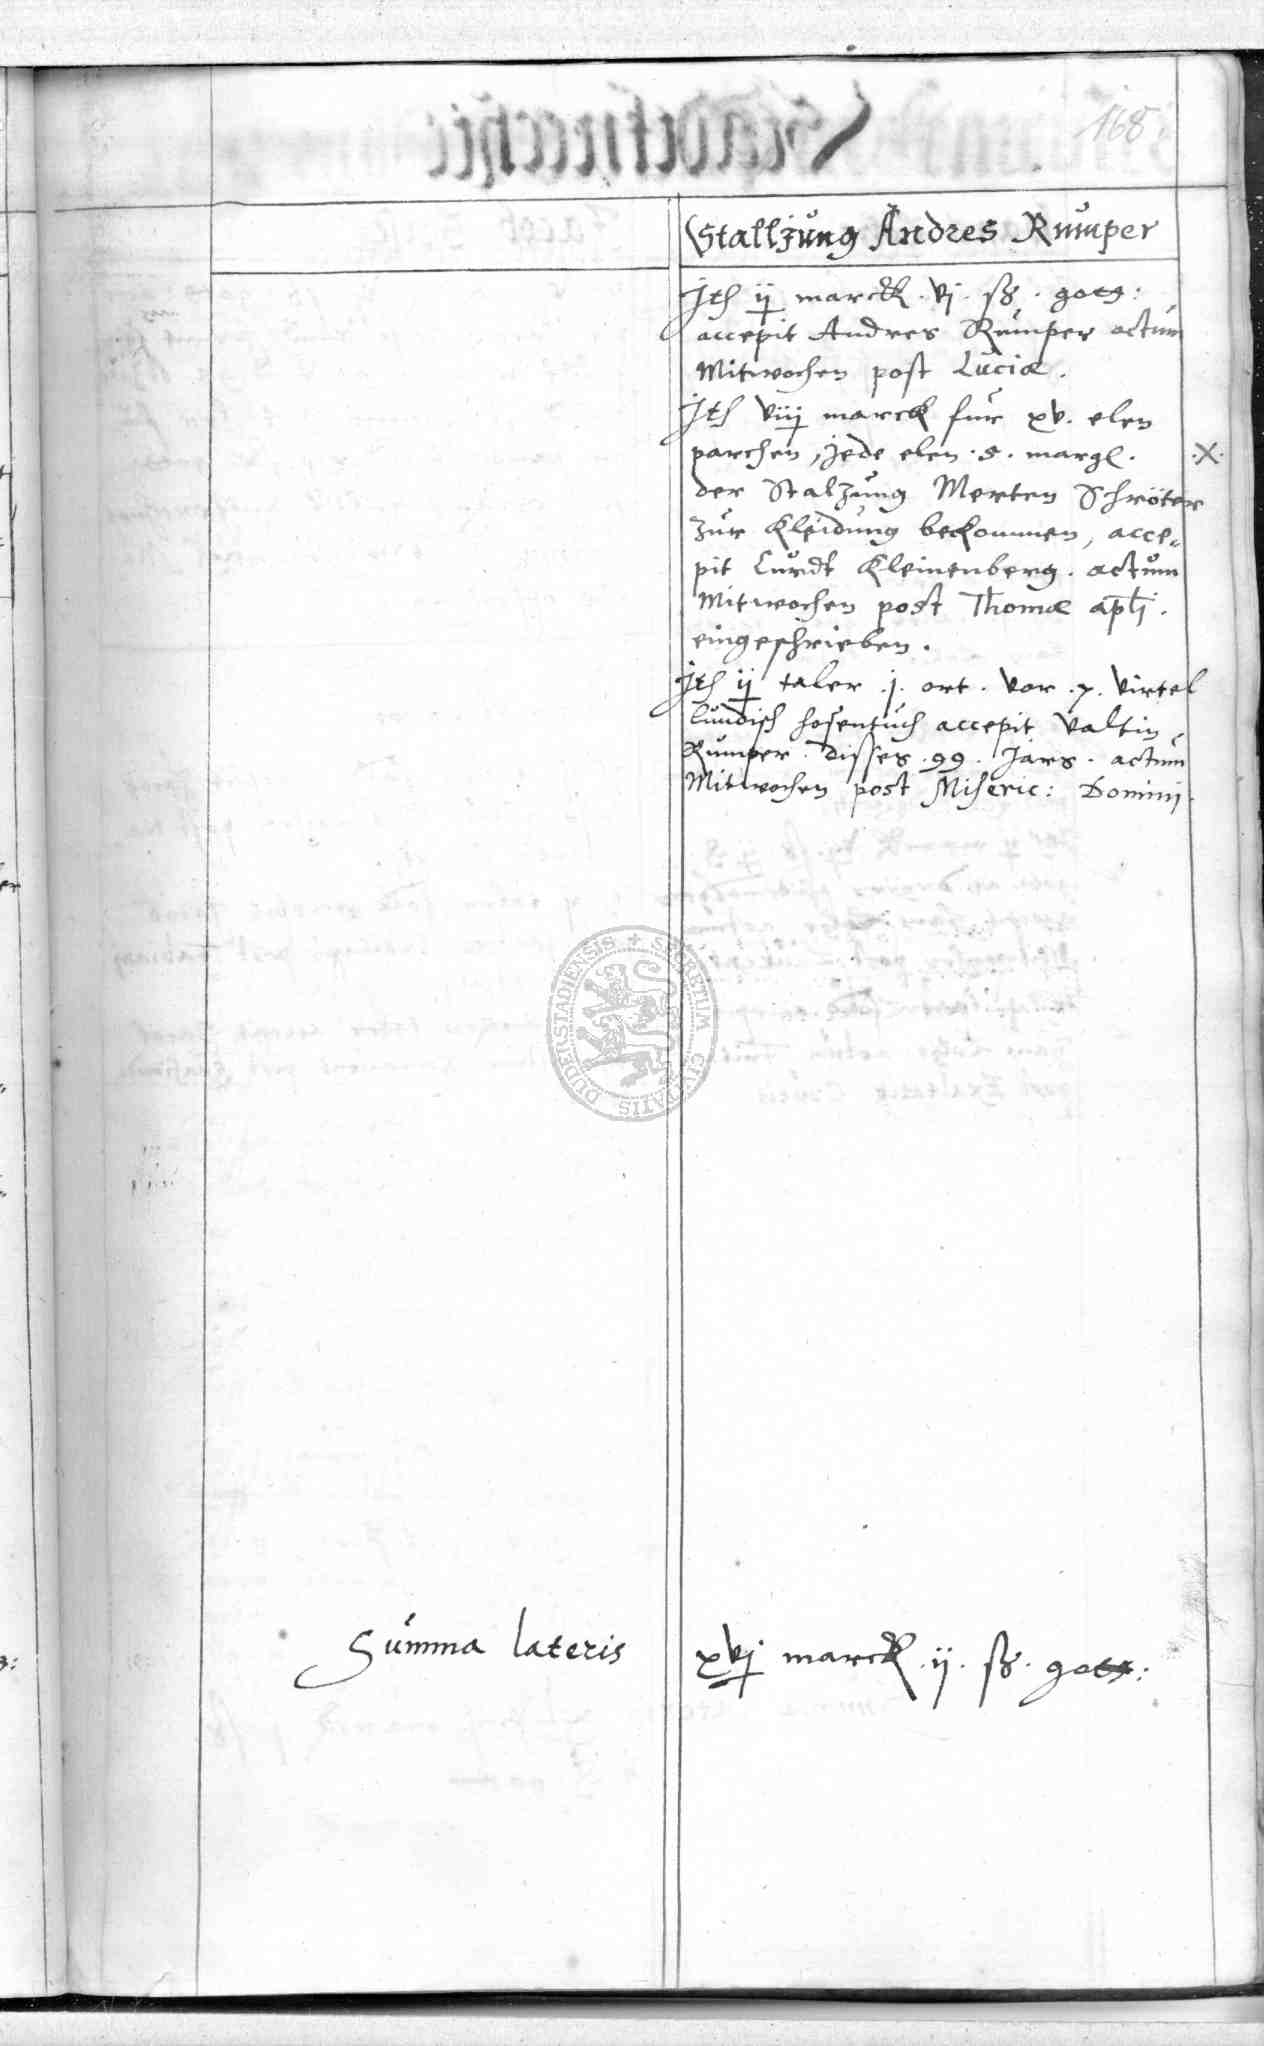 168
Stalljung Andres Rumper
Jtem ij marck . vj . ß . gots:
accepit Andres Rumper actum
Mitwochen post Luciæ .
Jtem viij marck fur xv . elen
parchen, jede elen . 5 . margl .
.X.
der Staljung Merten Schröter
zur Kleidung bekommen, acce„
pit Curdt Kleinenberg . actum
Mitwochen post Thomæ apli .
eingeschrieben .
Jtem ij taler . j . ort . vor . 7 . virtel
lundisch hosentuch accepit Valtin
Rumper . disses . 99 . Jars . actum
Mitwochen post Miseric: Domini .
SECRETUM CIVITATIS DUDERSTADIENSIS
Summa lateris xvj marck . ij . ß . gots: